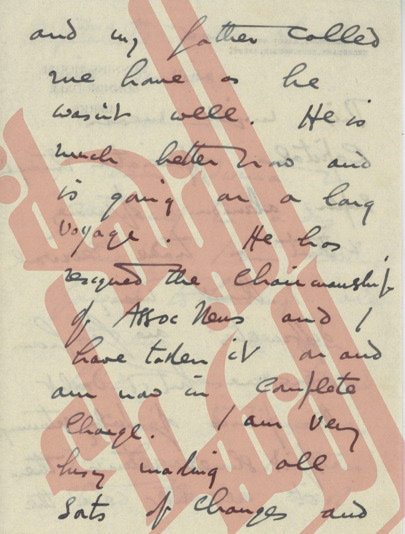 and my father called
me home as he
wasn't well. He is
much better now and
is going on a long
voyage. He has
resigned the Chairmanship
of Assoc News and I
have taken it on and
am now in complete
charge. I am very
busy making all
sorts of changes and